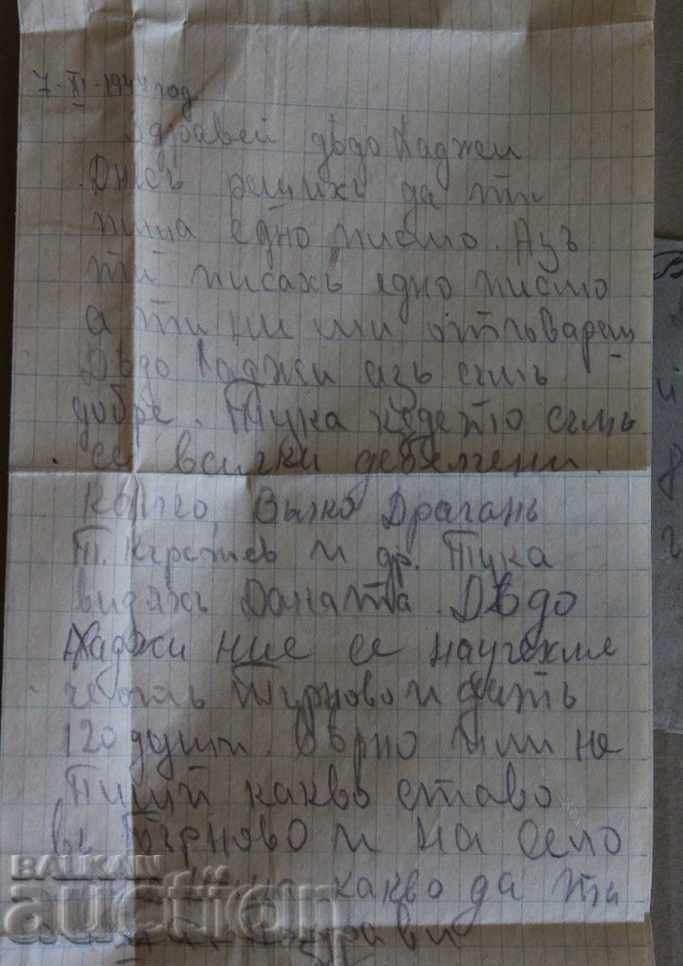 7-XI-1944 год
Здравей дѣдо Хаджи
Днесъ решихъ да ти
пиша едно писмо. Азъ
ти писахъ едно писмо
а ти ни ми отговареш
Дѣдо Хаджи азъ съмъ
добре. Тука кодето съмъ
са всички
Колго, Вълко Драганъ
Т. и др. Тука
видяхъ Доната. Дѣдо
Хаджи ние се научхме
че отъ Търново и
120 души. Вѣрно или не
Пиши какво ставо
въ Търново и на село
какво да ти
BALKAN
auction